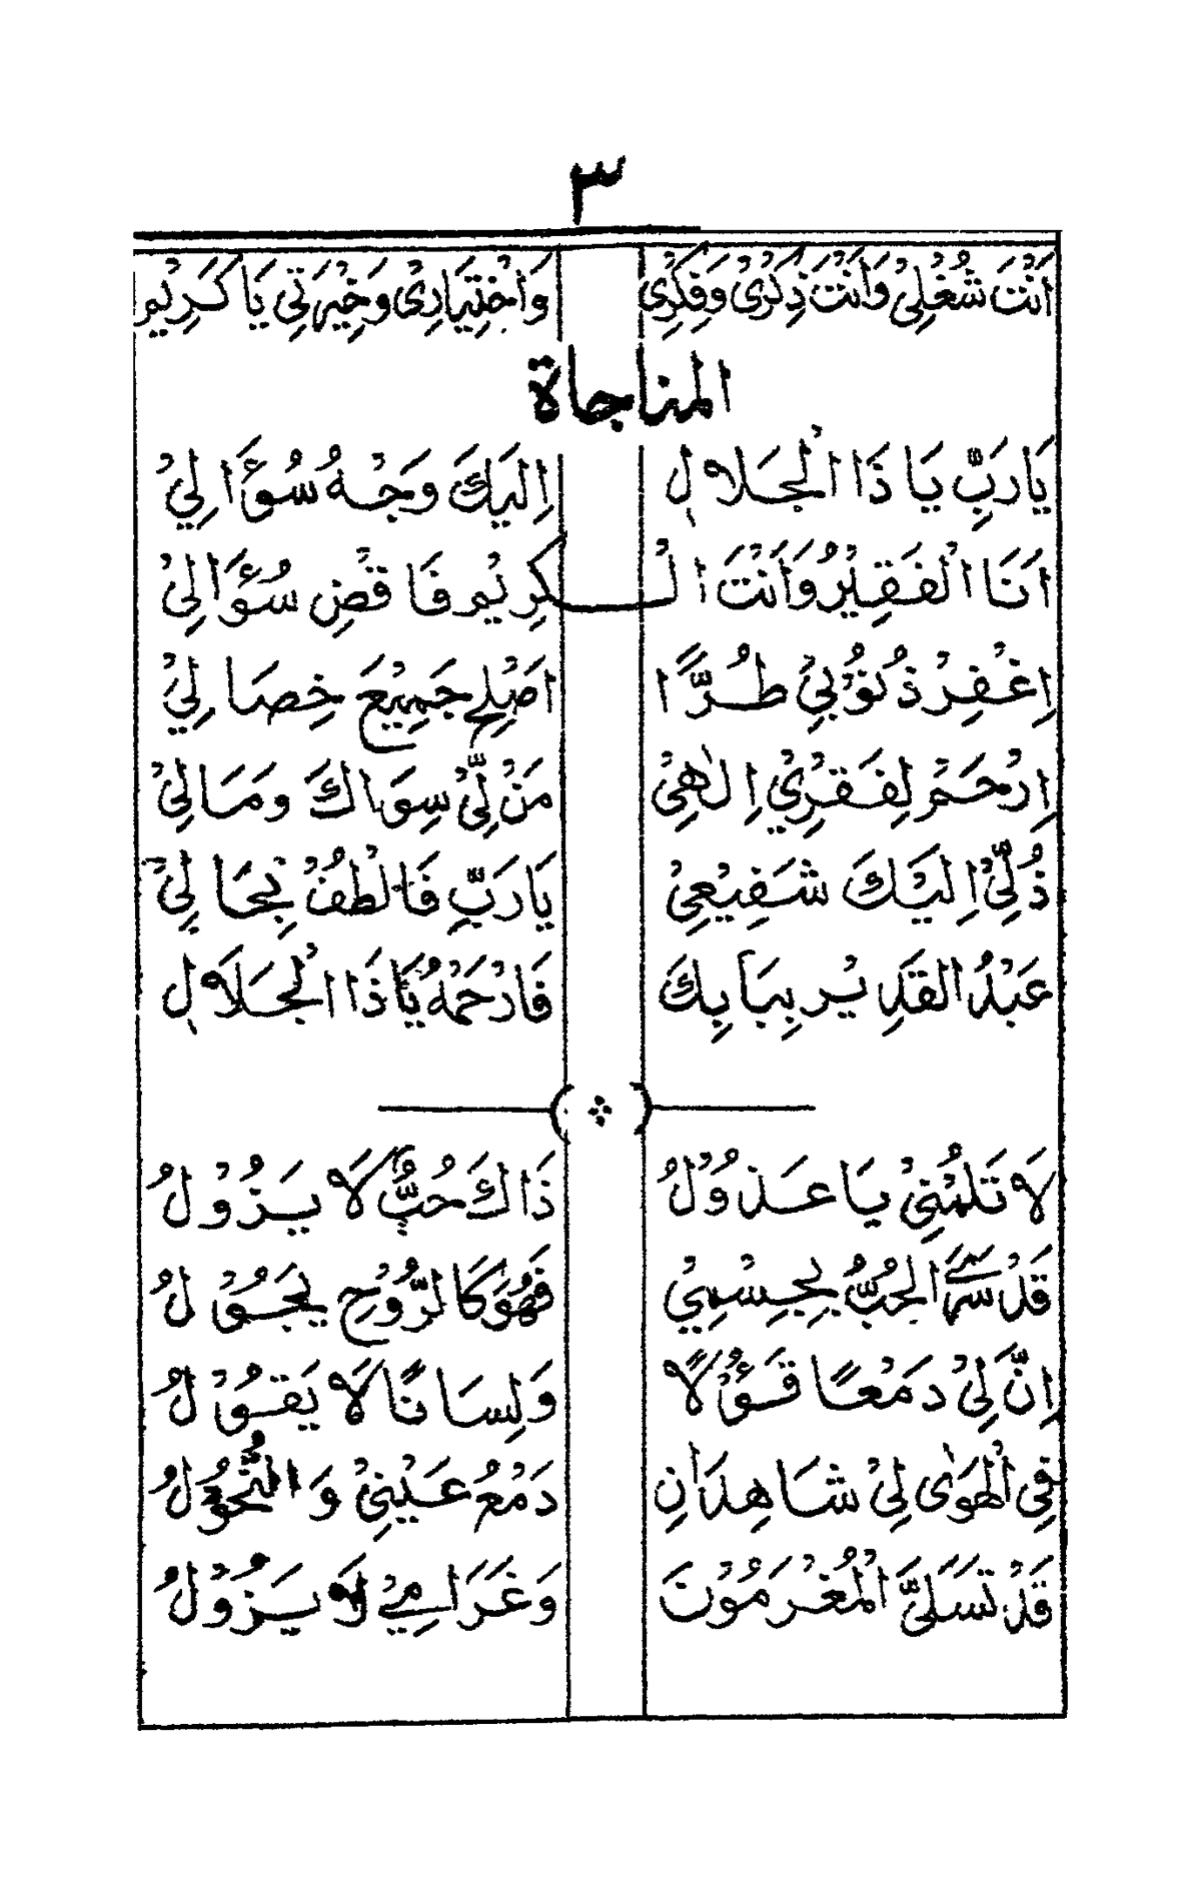 ٣
اَنْتَ شُغْلِيْ وَاَنْتَ ذِكْرِيْ وَفِكْرِيْ وَاخْتِيَارِيْ وَخِيْرَتِي يَا كَرِيْم
المناجاة
يَارَبِّ يَا ذَا الْجَلَالِ اِلَيْكَ وَجْهُ سُؤَالِيْ
اَنَا الْفَقِيْرُ وَاَنْتَ الْكَرِيْم فَاقْضِ سُؤَالِيْ
اِغْفِرْ ذُنُوْبِيْ طُرًّا اَصْلِح جَمِيْعَ خِصَالِيْ
اِرْحَمْ لِفَقْرِيْ اِلٰهِيْ مَنْ لِّيْ سِوَاكَ وَمَالِيْ
ذُلِّيْ اِلَيْكَ شَفِيْعِيْ يَارَبِّ فَالْطُفْ بِحَالِيْ
عَبْدُ الْقَدِيْر بِبَابِكَ فَارْحَمْهُ يَا ذَا الْجَلَالِ
لَا تَلُمْنِيْ يَا عَذُوْلُ ذَاكَ حُبٌّ لَا يَزُوْلُ
قَدْ سَرَى الْحُبُّ بِجِسْمِيْ فَهُوَ كَالرُّوْحِ يَجُوْلُ
اِنَّ لِيْ دَمْعًا قَؤُوْلًا وَلِسَانًا لَا يَقُوْلُ
فِي الْهَوٰى لِيْ شَاهِدَانِ دَمْعُ عَيْنِيْ وَالنُّحُوْلُ
قَدْ تَسَلَّى الْمُغْرَمُوْنَ وَغَرَامِيْ لَا يَزُوْلُ